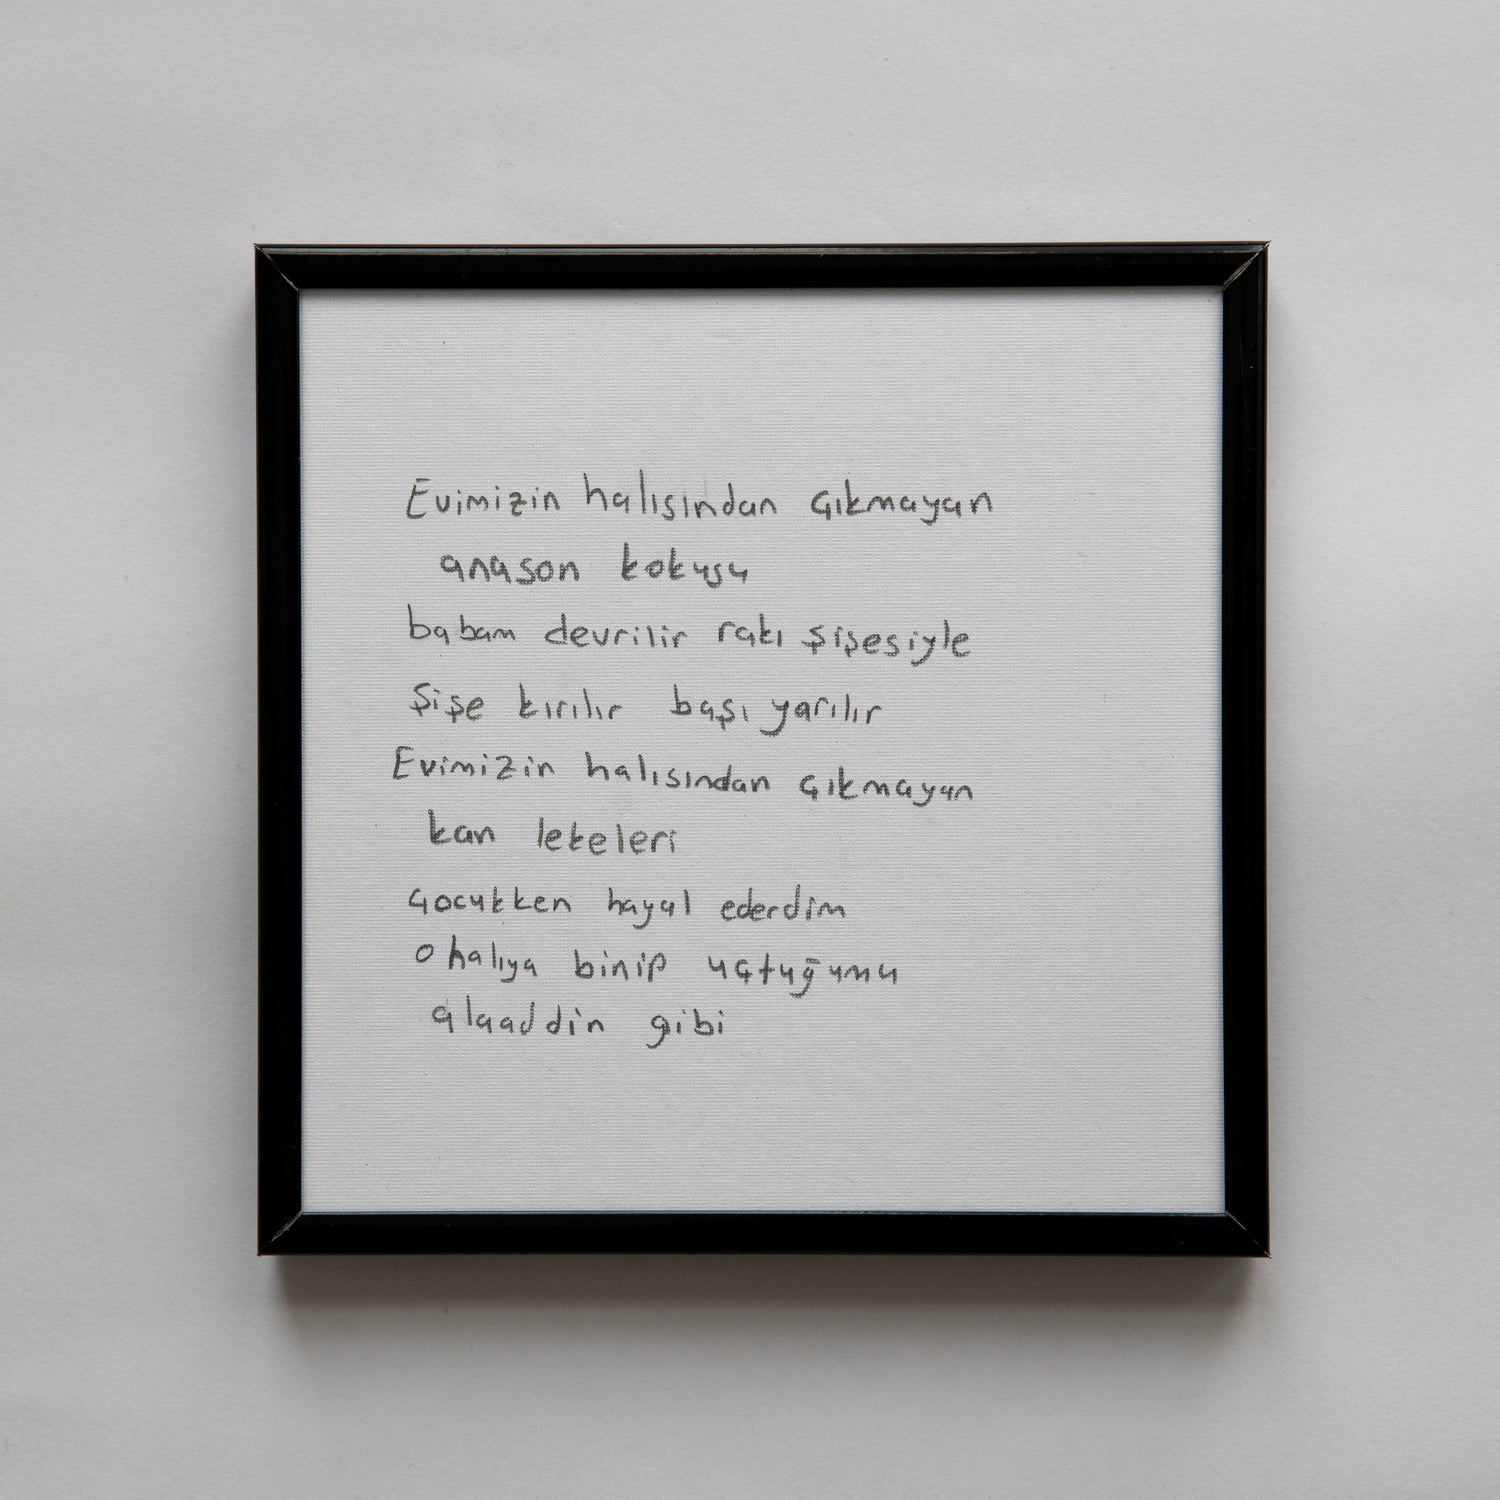 Evimizin halısından çıkmayan
anason kokusu
babam devrilir rakı şişesiyle
şişe kırılır başı yarılır
Evimizin halısından çıkmayan
kan lekeleri
çocukken hayal ederdim
o halıya binip uçtuğumu
alaaddin gibi